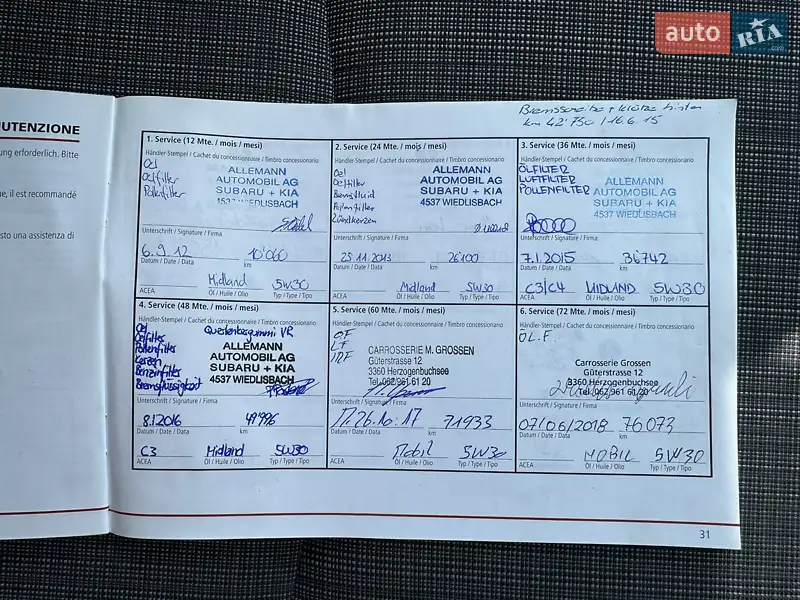 auto RIA.com
Bremsscheibe + klötze hinten
km 42'750 / 16.6.15
UTENZIONE
ung erforderlich. Bitte
ne, il est recommandé
sto una assistenza di
1. Service (12 Mte. / mois / mesi)
Händler-Stempel / Cachet du concessionnaire / Timbro concessionario
Oel
Oelfilter
Pollenfilter
ALLEMANN
AUTOMOBIL AG
SUBARU + KIA
4537 WIEDLISBACH
Unterschrift / Signature / Firma
6.9.12 10'060
Datum / Date / Data km
Midland 5W30
ACEA Öl / Huile / Olio Typ / Type / Tipo
2. Service (24 Mte. / mois / mesi)
Händler-Stempel / Cachet du concessionnaire / Timbro concessionario
Oel
Oelfilter
Bremsfluid
Pollenfilter
Zündkerzen
ALLEMANN
AUTOMOBIL AG
SUBARU + KIA
4537 WIEDLISBACH
Unterschrift / Signature / Firma
25.11.2013 26'100
Datum / Date / Data km
Midland 5W30
ACEA Öl / Huile / Olio Typ / Type / Tipo
3. Service (36 Mte. / mois / mesi)
Händler-Stempel / Cachet du concessionnaire / Timbro concessionario
ÖLFILTER
LUFTFILTER
POLLENFILTER
ALLEMANN
AUTOMOBIL AG
SUBARU + KIA
4537 WIEDLISBACH
Unterschrift / Signature / Firma
7.1.2015 36'742
Datum / Date / Data km
C3/C4 MIDLAND 5W30
ACEA Öl / Huile / Olio Typ / Type / Tipo
4. Service (48 Mte. / mois / mesi)
Händler-Stempel / Cachet du concessionnaire / Timbro concessionario
Oel
Oelfilter
Pollenfilter
Kerzen
Benzinfilter
Bremsflüssigkeit
VR
ALLEMANN
AUTOMOBIL AG
SUBARU + KIA
4537 WIEDLISBACH
Unterschrift / Signature / Firma
8.1.2016 49'996
Datum / Date / Data km
C3 Midland 5W30
ACEA Öl / Huile / Olio Typ / Type / Tipo
5. Service (60 Mte. / mois / mesi)
Händler-Stempel / Cachet du concessionnaire / Timbro concessionario
OF
LF
CARROSSERIE M. GROSSEN
Güterstrasse 12
3360 Herzogenbuchsee
Tel. 062/961 61 20
Unterschrift / Signature / Firma
26.10.17 71933
Datum / Date / Data km
Mobil 5W30
ACEA Öl / Huile / Olio Typ / Type / Tipo
6. Service (72 Mte. / mois / mesi)
Händler-Stempel / Cachet du concessionnaire / Timbro concessionario
ÖL.F.
Carrosserie Grossen
Güterstrasse 12
3360 Herzogenbuchsee
Tel. 062/961 61 20
Unterschrift / Signature / Firma
07/06/2018 76073
Datum / Date / Data km
MOBIL 5W30
ACEA Öl / Huile / Olio Typ / Type / Tipo
31